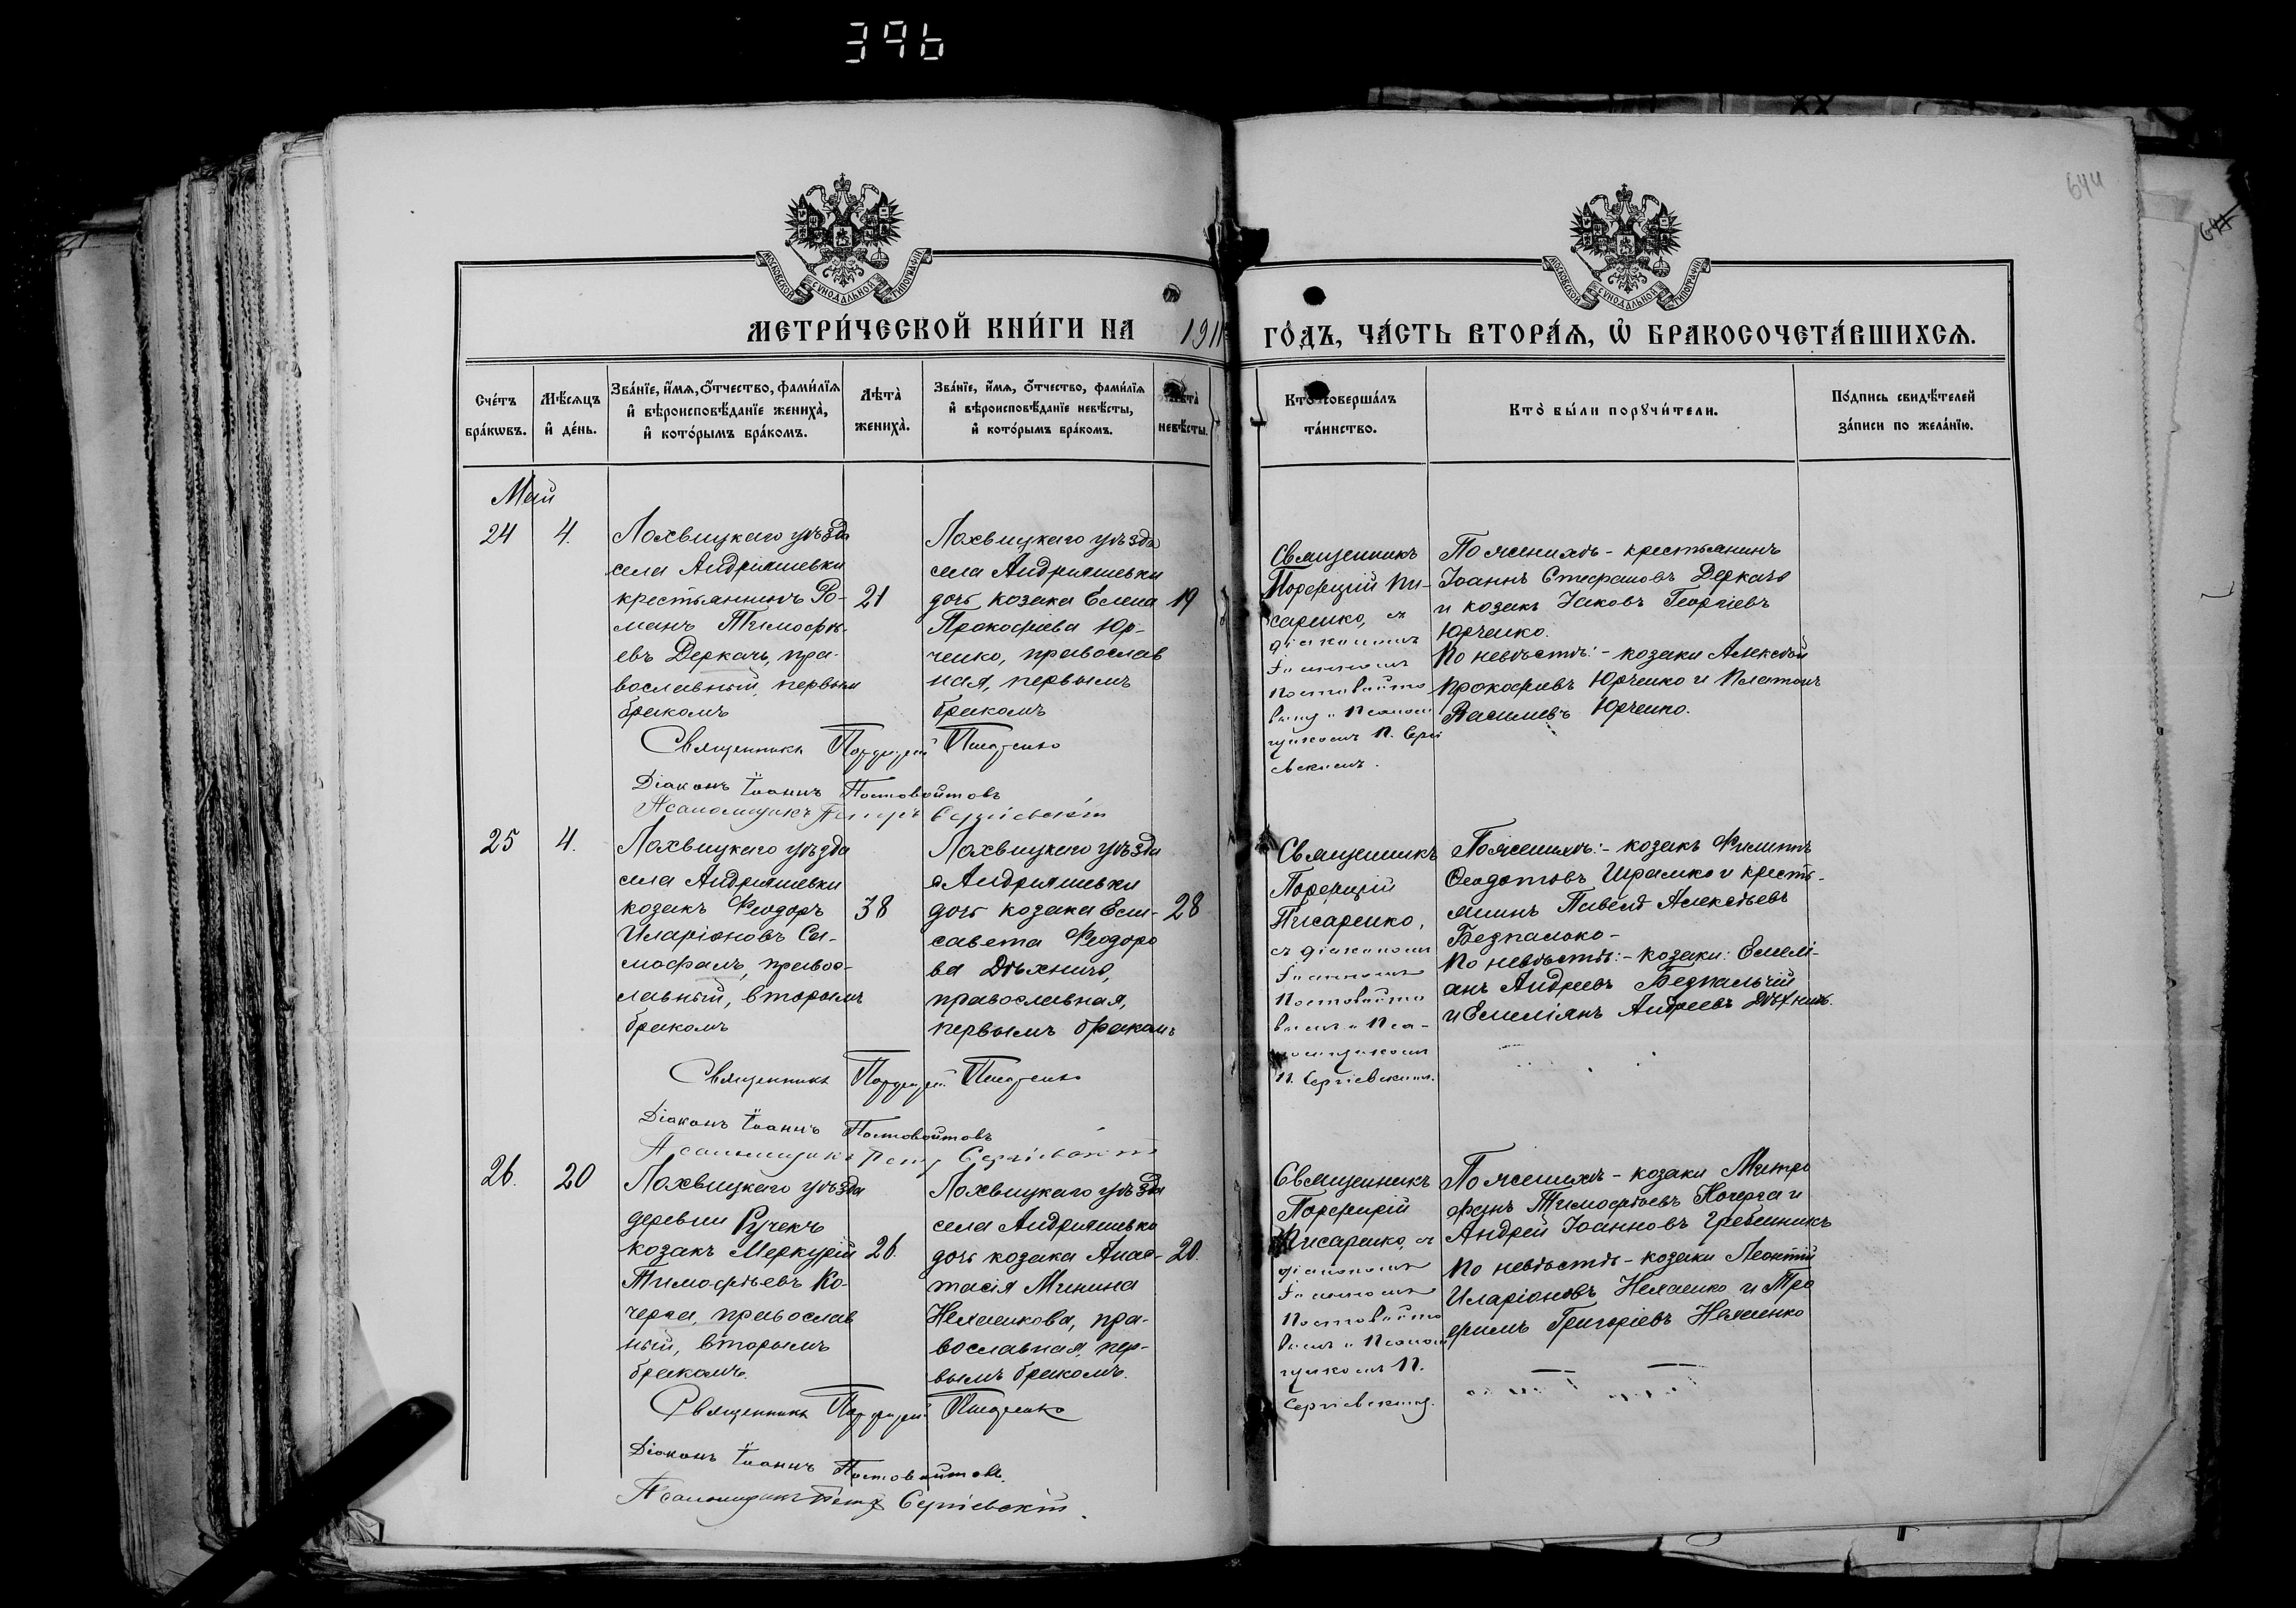 396
644
МОСКОВСКОЙ СУНОДАЛЬНОЙ ТИПОГРАФІИ
МОСКОВСКОЙ СУНОДАЛЬНОЙ ТИПОГРАФІИ
МЕТРИ́ЧЕСКОЙ КНИ́ГИ НА 1911
ГО́ДЪ, ЧА́СТЬ ВТОРА́Ѧ, Ѡ҆ БРАКОСОЧЕТА́ВШИХСѦ.
Сче́тъ бра́кѡвъ.
Мѣ́сѧцъ и҆ де́нь.
Зва́нїе, и҆́мѧ, ѻ҆́тчество, фами́лїѧ и҆ вѣроисповѣ́данїе жениха̀, и҆ кото́рымъ бра́комъ.
Лѣта̀ жениха̀.
Зва́нїе, и҆́мѧ, ѻ҆́тчество, фами́лїѧ и҆ вѣроисповѣ́данїе невѣ́сты, и҆ кото́рымъ бра́комъ.
Лѣта̀ невѣ́сты.
Кто̀ соверша́лъ та́инство.
Кто̀ бы́ли порꙋчи́тели.
По́дпись свидѣ́телей за́писи по жела́нїю.
Май
24
4.
Лохвицкаго уѣзда
села Андріяшевки
крестьянинъ Ро-
манъ Тимофѣ-
евъ Деркачъ, пра-
вославный, первымъ
бракомъ
21
Лохвицкаго уѣзда
села Андріяшевки
дочь козака Елена
Прокофіева Юр-
ченко, православ
ная, первымъ
бракомъ
19
Священникъ
Порфирій Пи-
саренко, съ
діакономъ
Іоанномъ
Постовойто
вымъ и Псалом
щикомъ П. Сергі
евскимъ.
По женихѣ - крестьянинъ
Іоаннъ Стефановъ Деркачъ
и козакъ Іаковъ Георгіевъ
Юрченко.
По невѣстѣ: - козаки Алексѣй
Прокофіевъ Юрченко и Платонъ
Василіевъ Юрченко.
Священникъ Порфирій Писаренко
Діаконъ Іоаннъ Постовойтовъ
Псаломщикъ Петръ Сергіевскій
25
4.
Лохвицкаго уѣзда
села Андріяшевки
козакъ Феодоръ
Иларіоновъ Са-
мофалъ, правос-
лавный, вторымъ
бракомъ
38
Лохвицкаго уѣзда
с Андріяшевки
дочь козака Ели-
савета Феодоро
ва Дѣхничъ,
православная,
первымъ бракомъ
28
Священникъ
Порфирій
Писаренко,
съ діакономъ
Іоанномъ
Постовойто
вымъ и Пса-
ломщикомъ
П. Сергіевскимъ.
По женихѣ: - козакъ Филиппъ
Ѳеодотовъ Шрамко и кресть-
янинъ Павелъ Алексѣевъ
Безпалько-
По невѣстѣ: - козаки: Емелі-
анъ Андреевъ Безпальчій
и Емеліянъ Андреевъ Дѣхничъ.
Священникъ Порфирій Писаренко
Діаконъ Іоаннъ Постовойтовъ
Псаломщикъ Петръ Сергіевскій
26.
20
Лохвицкаго уѣзда
деревни Ручекъ
козакъ Меркурій
Тимофѣевъ Ко-
черга, православ
ный, вторымъ
бракомъ.
26.
Лохвицкаго уѣзда
села Андріяшевки
дочь козака Анас-
тасія Минина
Нехаенкова, пра-
вославная, пер-
вымъ бракомъ.
20.
Священникъ
Порфирій
Писаренко, съ
діакономъ
Іоанномъ
Постовойто
вымъ и Псалом
щикомъ П.
Сергіевскимъ.
По женихѣ - козаки Митро
фанъ Тимофѣевъ Кочерга и
Андрей Іоанновъ Гребенникъ
По невѣстѣ - козаки Леонтій
Иларіоновъ Нехаенко и Тро
фимъ Григоріевъ Нехаенко
Священникъ Порфирій Писаренко
Діаконъ Іоаннъ Постовойтовъ.
Псаломщикъ Петръ Сергіевскій.